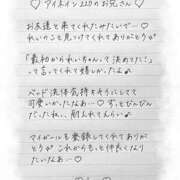 ♡ アイネイン220のお兄さん ♡
お友達と来てくれたみたいで…♡
れいかのこと見つけてくれてありがとう♡
「最初かられいちゃんって決めてた!」
って言ってくれて嬉しかったよ♪
ベッド 流体気持ちよさそうにしてて
可愛いかったなぁ…♡ ずっとびんびん
だったね、、耐えれてえらい♪
マイガールも登録してくれてありが
とう♡ これからもっと仲良くなり
たいなぁ…♡